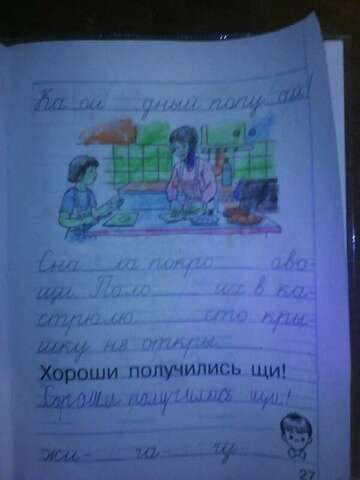 Ка ой дный попу ай!
Сна ла покро ово-
щи. Поло их в ка-
стрюлю. сто кры-
шку не откры
Хороши получились щи!
Хороши получились щи!
жи- ча- чу-
27